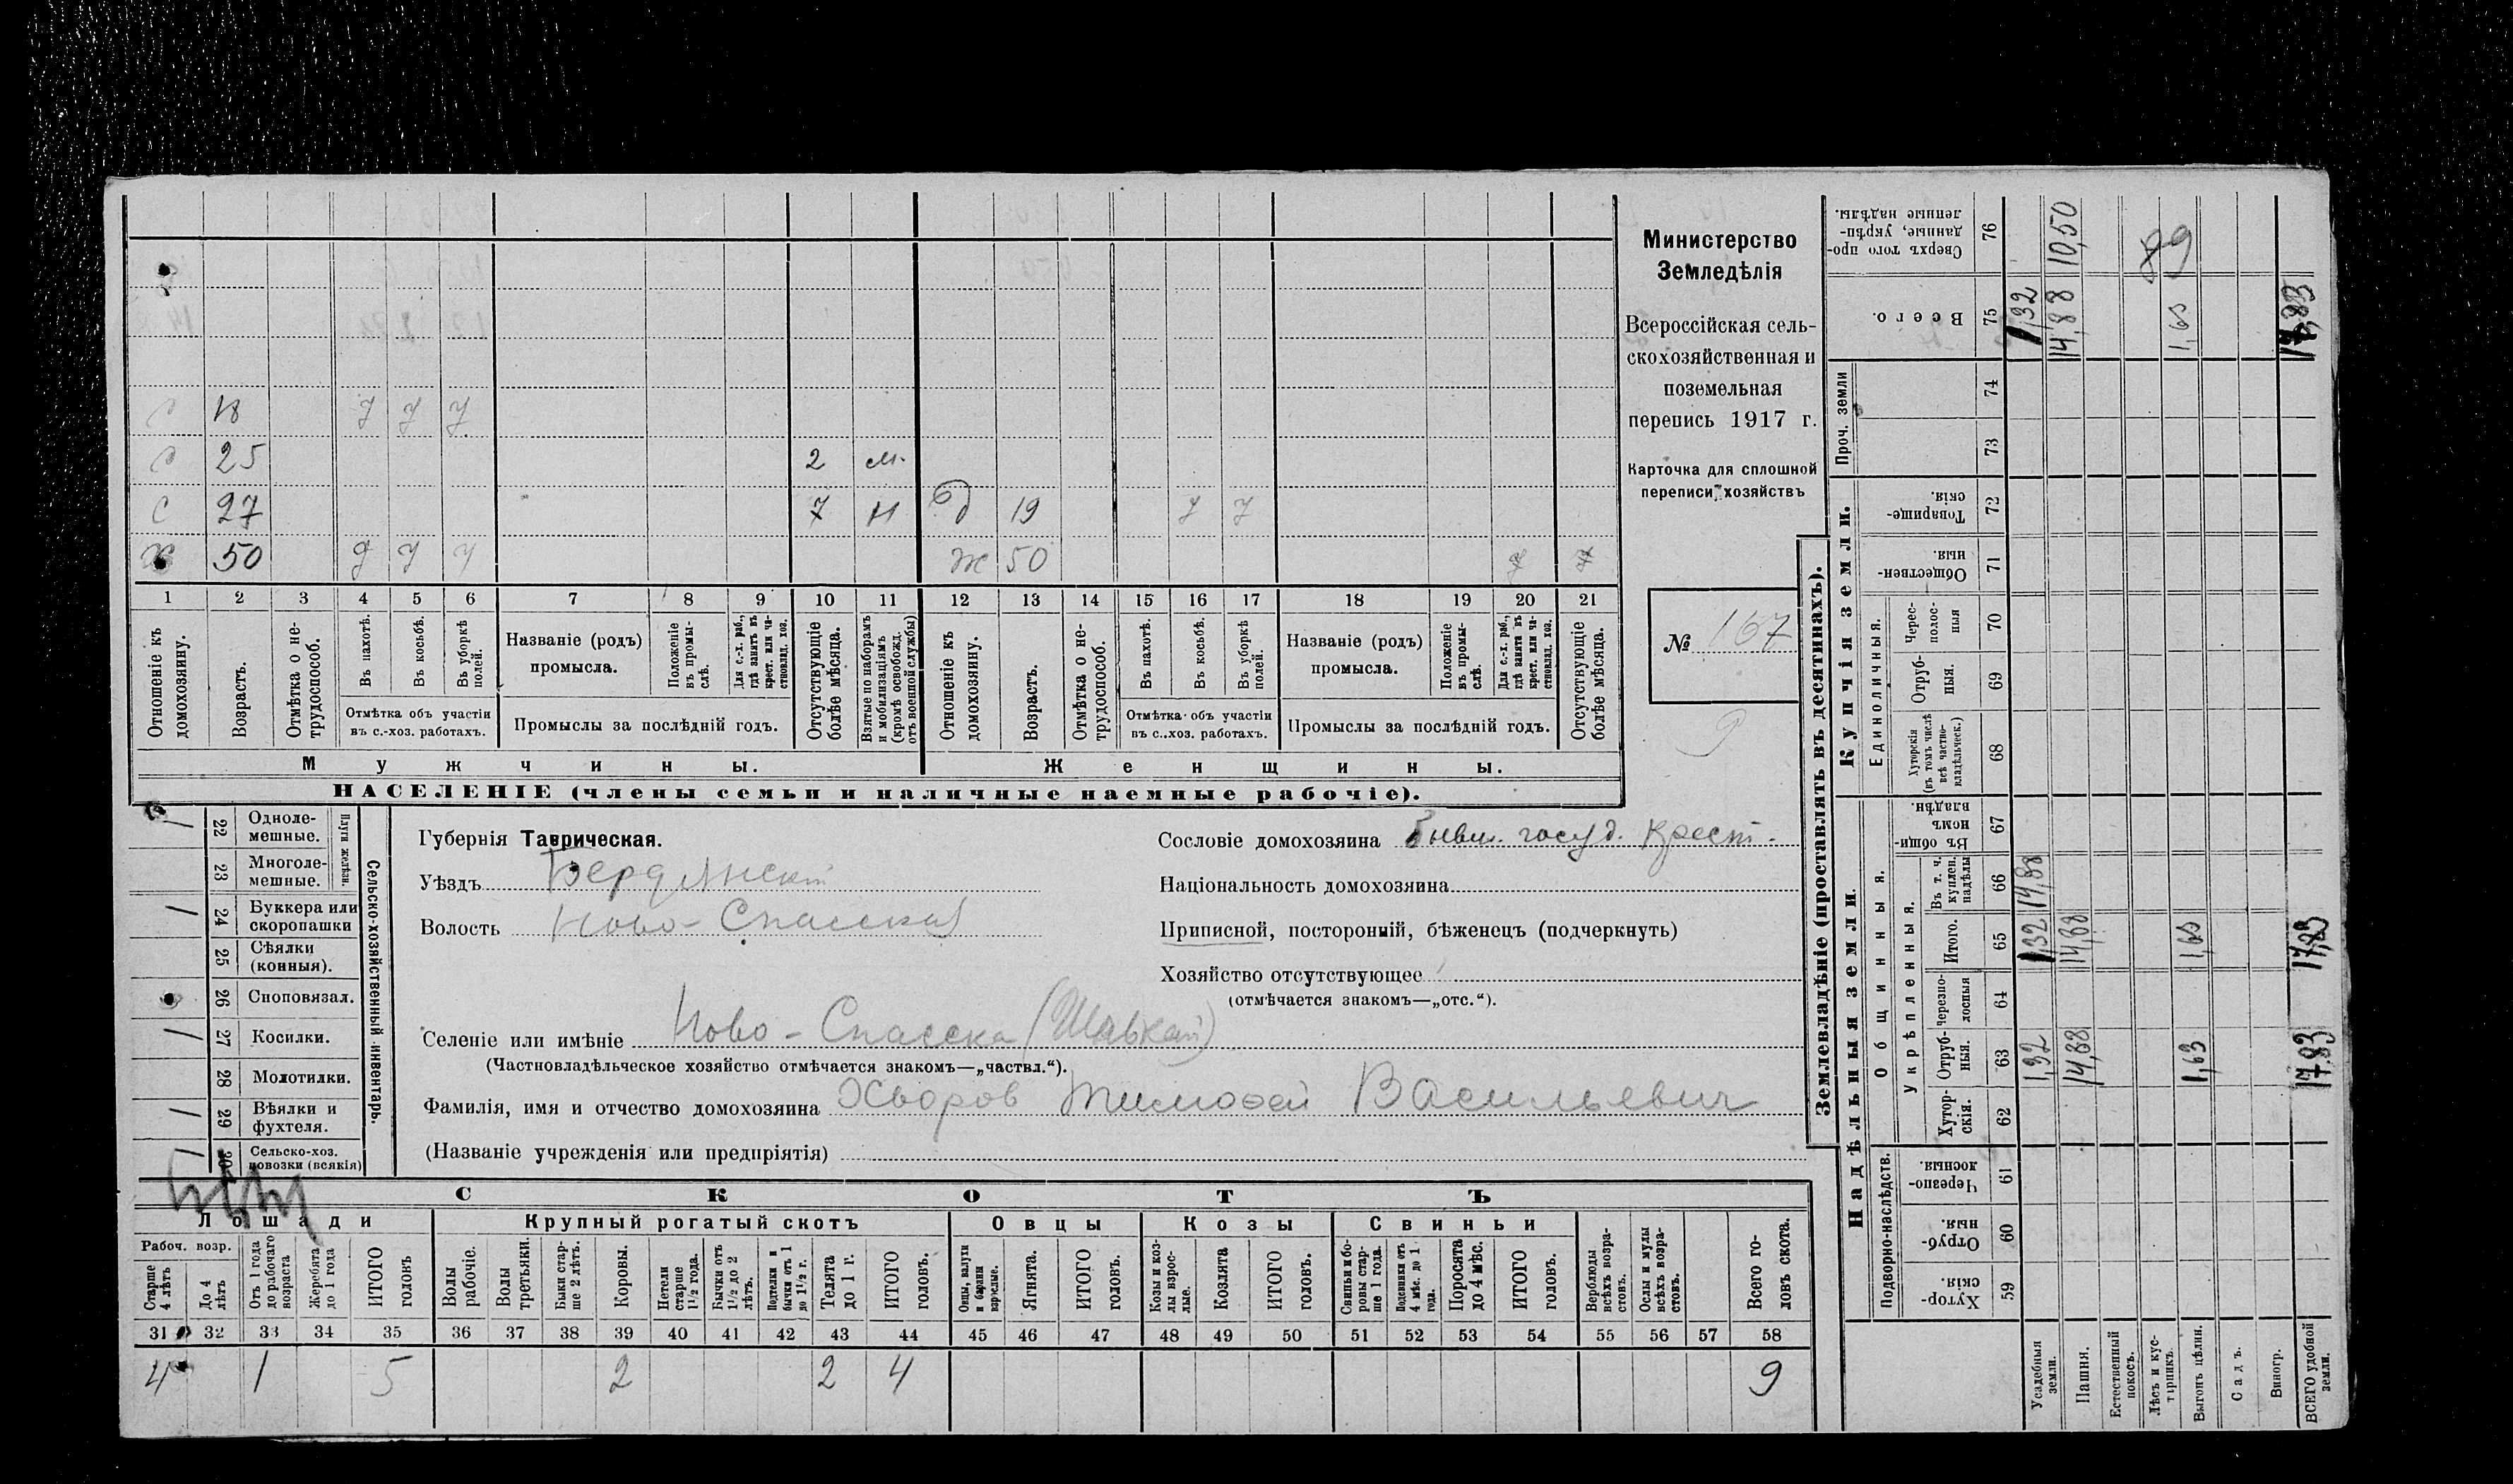 Министерство
Земледѣлія
Всероссійская сель-
скохозяйственная и
поземельная
перепись 1917 г.
Карточка для сплошной
переписи хозяйствъ
№ 167
9
18 У У У
С 25 2 м.
С 27 7 Н д 19 У У
Х 50 У У У Ж 50
1 2 3 4 5 6 7 8 9 10 11 12 13 14 15 16 17 18 19 20 21
Отношеніе къ домохозяину.
Возрастъ.
Отмѣтка о не-трудоспособ.
Въ пахотѣ.
Въ косьбѣ.
Въ уборкѣ полей.
Отмѣтка объ участіи
въ с.-хоз. работахъ.
Названіе (родъ)
промысла.
Положеніе въ промы-слѣ.
Для с.-х. раб., гдѣ занятъ въ крест. или ча-стновлад. хоз.
Промыслы за послѣдній годъ.
Отсутствующіе болѣе мѣсяца.
Взятые по наборамъ и мобилизаціямъ (кромѣ освобожд. отъ военной службы)
Отношеніе къ домохозяину.
Возрастъ.
Отмѣтка о не-трудоспособ.
Въ пахотѣ.
Въ косьбѣ.
Въ уборкѣ полей.
Отмѣтка объ участіи
въ с..хоз. работахъ.
Названіе (родъ)
промысла.
Положеніе въ промы-слѣ.
Для с.-х. раб., гдѣ занята въ крест. или ча-стновлад. хоз.
Промыслы за послѣдній годъ.
Отсутствующіе болѣе мѣсяца.
Мужчины. Женщины.
НАСЕЛЕНІЕ (члены семьи и наличные наемные рабочіе).
Сельско-хозяйственный инвентарь.
Плуги желѣзн.
/ 22 Одноле-мешные.
23 Многоле-мешные.
/ 24 Буккера или скоропашки
25 Сѣялки (конныя).
26 Сноповязал.
/ 27 Косилки.
28 Молотилки.
/ 29 Вѣялки и фухтеля.
/ 30 Сельско-хоз. повозки (всякія)
Губернія Таврическая.
Уѣздъ Бердянскій
Волость Ново-Спасская
Сословіе домохозяина Бывш. госуд. крест.
Національность домохозяина
Приписной, посторонній, бѣженецъ (подчеркнуть)
Хозяйство отсутствующее
(отмѣчается знакомъ—„отс.“).
Селеніе или имѣніе Ново-Спасска
(Частновладѣльческое хозяйство отмѣчается знакомъ—„частвл.“).
Фамилія, имя и отчество домохозяина Хворов Тимофей Васильевич
(Названіе учрежденія или предпріятія)
СКОТЪ
Лошади Крупный рогатый скотъ Овцы Козы Свиньи
Рабоч. возр.
Старше 4 лѣтъ
До 4 лѣтъ
Отъ 1 года до рабочаго возраста
Жеребята до 1 года
ИТОГО головъ
Волы рабочіе.
Волы третьяки.
Быки стар-ше 2 лѣтъ.
Коровы.
Нетели старше 1½ года.
Бычки отъ 1½ до 2 лѣтъ.
Подтелки и бычки отъ 1 до 1½ г.
Телята до 1 г.
ИТОГО головъ.
Овцы, валухи и бараны взрослые.
Ягнята.
ИТОГО головъ.
Козы и коз-лы взрос-лые.
Козлята
ИТОГО головъ.
Свиньи и бо-ровы стар-ше 1 года.
Подсвинки отъ 4 мѣс. до 1 года.
Поросята до 4 мѣс.
ИТОГО головъ.
Верблюды всѣхъ возра-стовъ.
Ослы и мулы всѣхъ возра-стовъ.
Всего го-ловъ скота.
31 32 33 34 35 36 37 38 39 40 41 42 43 44 45 46 47 48 49 50 51 52 53 54 55 56 57 58
4 1 5 2 2 4 9
Землевладѣніе (проставлять въ десятинахъ).
Надѣльныя земли. Купчія земли. Проч. земли
Подворно-наслѣдств. Общинныя. Единоличныя.
Укрѣпленныя.
Хутор-скія. 59
Отруб-ныя. 60
Черезпо-лосныя. 61
Хутор-скія. 62
Отруб-ныя. 63
Черезпо-лосныя 64
Итого. 65
Въ т. ч. куплен. надѣлы 66
Въ общин-номъ владѣн. 67
Хуторскія (въ томъ числѣ всѣ частно-владѣльческ.) 68
Отруб-ныя. 69
Черес-полос-ныя 70
Обществен-ныя. 71
Товарище-скія. 72
73
74
Всего. 75
Сверхъ того про-данные, укрѣп-ленные надѣлы. 76
Усадебныя земли. 1,32 1,32 14,88 1,32
Пашня. 14,88 14,88 14,88 10,50
Естественный покосъ.
Лѣсъ и кус-тарникъ. 89
Выгонъ цѣлин. 1,63 1,63 1,63
Садъ.
Виногр.
ВСЕГО удобной земли. 17,83 17,83 17,83